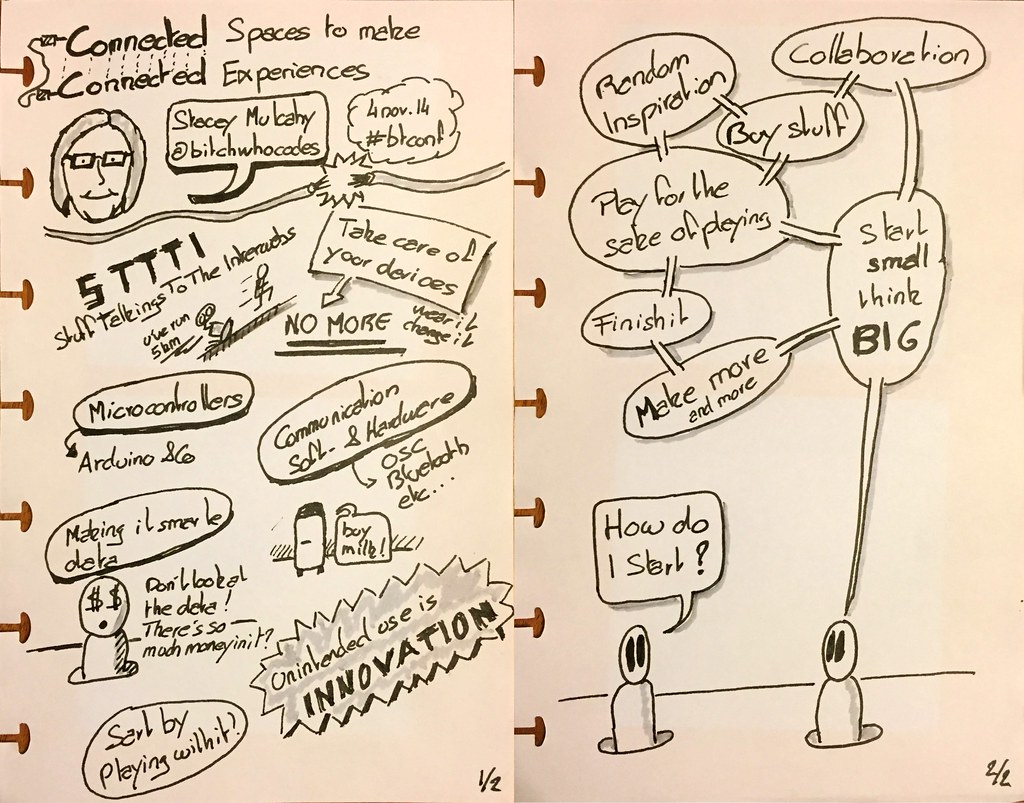 Connected Spaces to make
Connected Experiences
Stacey Mulcahy
@bitchwhocodes
4 nov. 14
#btconf
STTTI
Stuff Talkings To The Interwebs
u've run
5km
Take care of
your devices
NO MORE
wear it
charge it
Microcontrollers
Arduino & Co
Communication
Soft- & Hardware
OSC
Bluetooth
etc...
Making it smarte
data
buy
milk!
$ $
Don't look at
the data!
There's so
much money in it?
Unintended use is
INNOVATION
Sart by
playing with it!
1/2
Random
Inspiration
Collaboration
Buy stuff
Play for the
sake of playing
Start
small
think
BIG
Finish it
Make more
and more
How do
I Start?
2/2